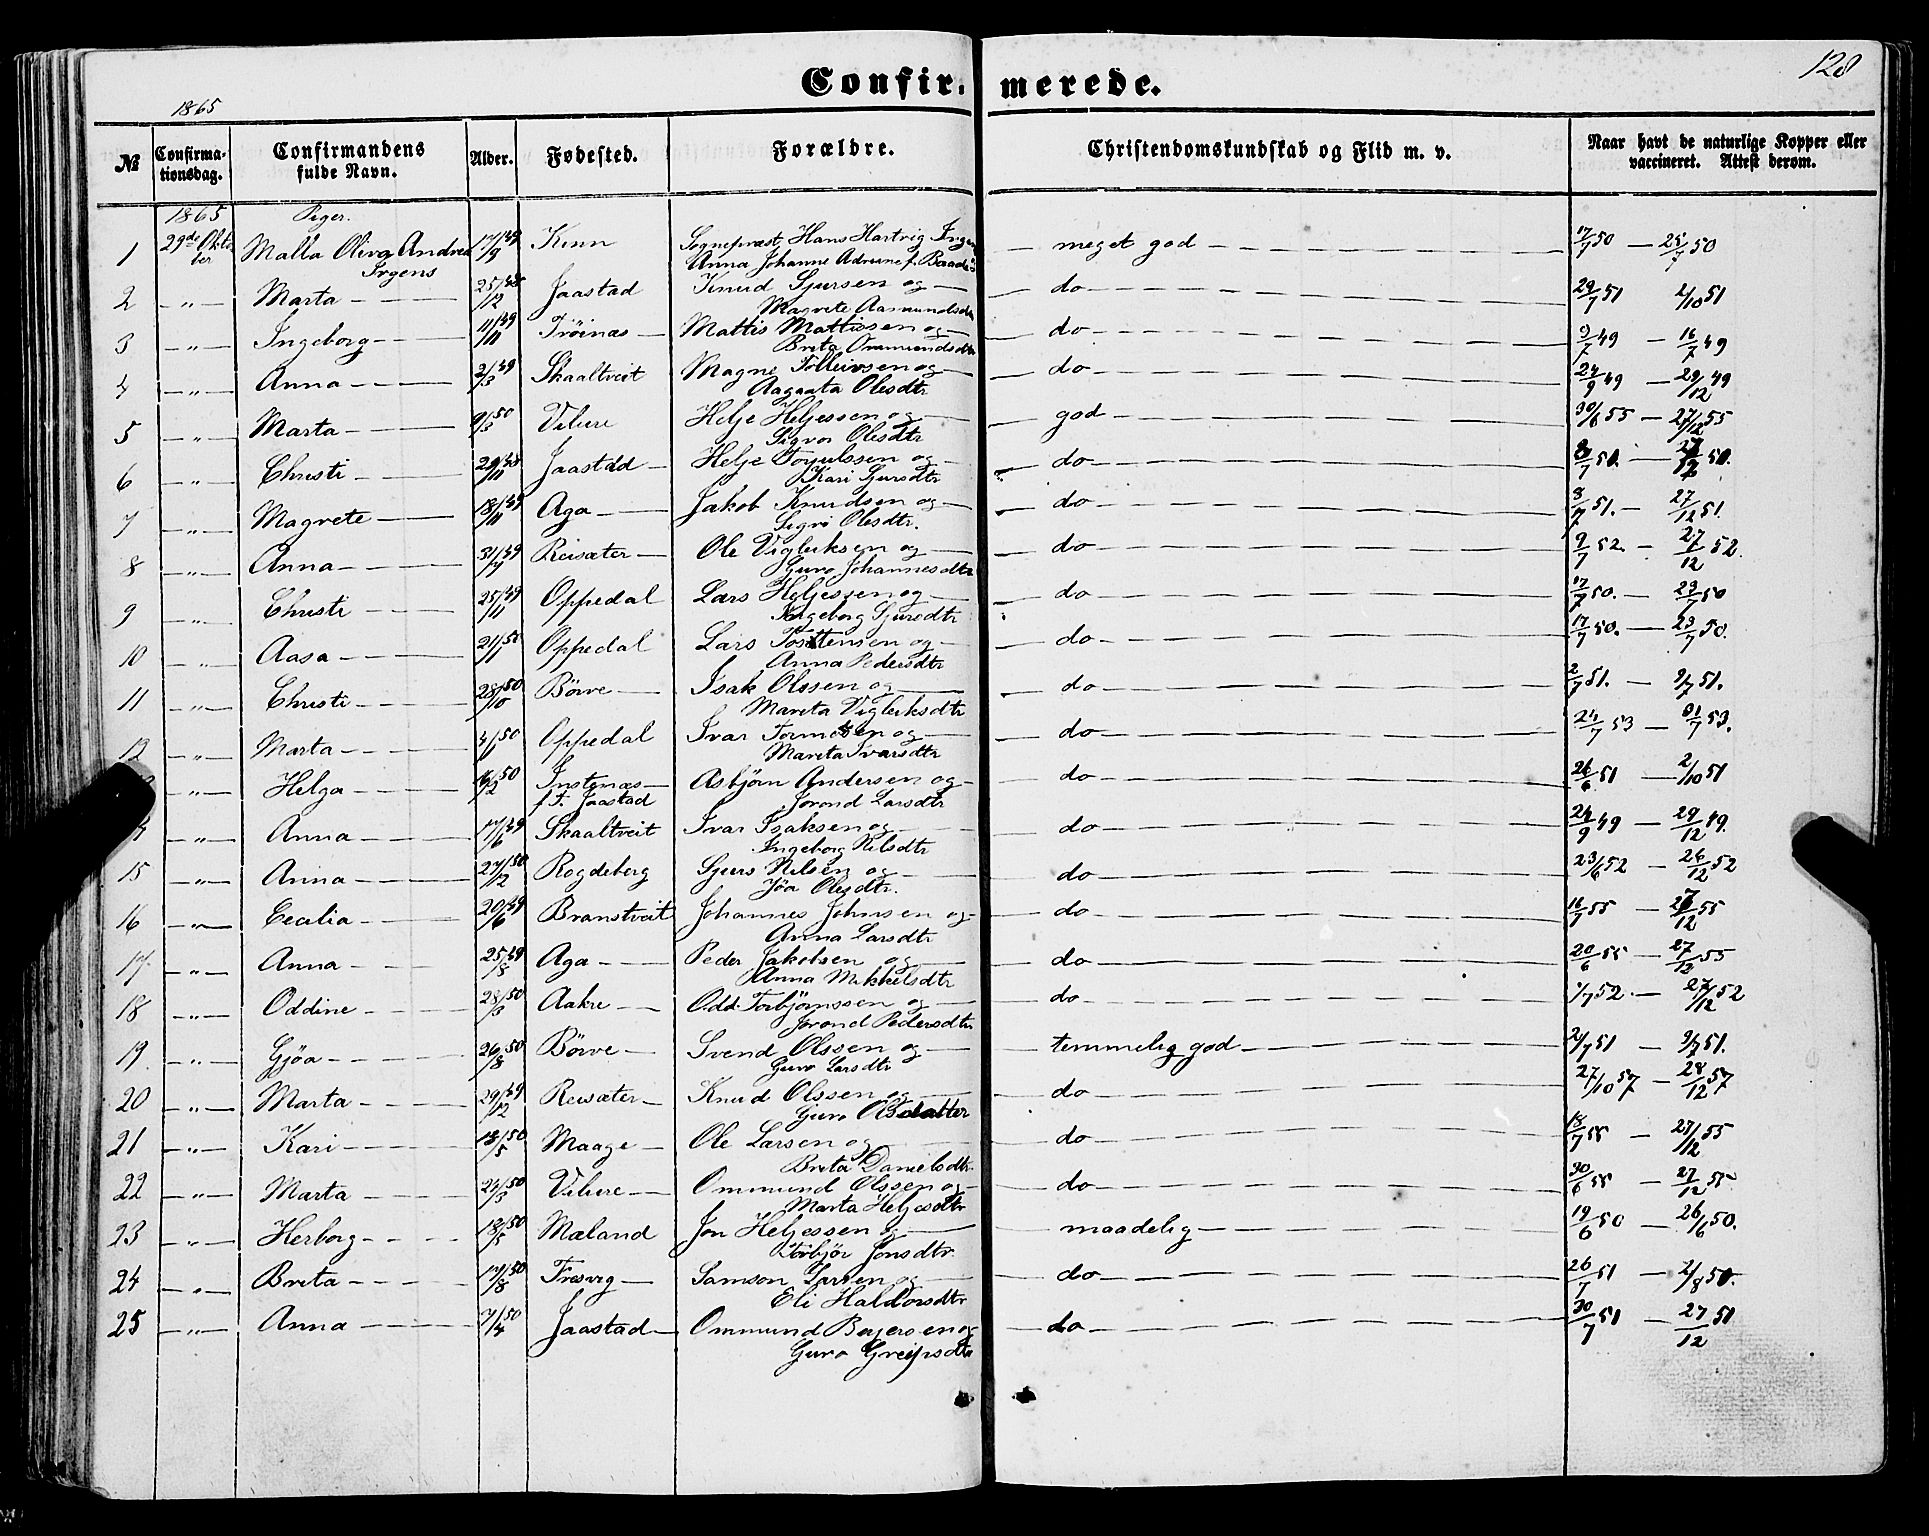 128
Confirmerede.
1865
№ Confirmationsdag. Confirmandens fulde Navn. Alder. Fødested. Forældre. Christendomskundskab og Flid m. v. Naar havt de naturlige Kopper eller vaccineret. Attest derom.
1865 Piger.
1 29de Oktober Malla Oliva Andrea Irgens 17/9 49 Kinn Sognepræst Hans Hartvig Irgens
Anna Johanne Adriane f. meget god 17/7 50 — 25/7 50
2 -"- Marta 25/12 48 Jaastad Knud Sjursen og
Magrete Aamundsdtr do 29/7 51 2/10 51
3 -"- Ingeborg 11/11 49 Tröinæs Mattis Mattissen og
Brita Ommundsdtr do 9/7 49 — 16/7 49
4 -"- Anna 2/3 49 Skaaltveit Magne Tolleivsen og
Aagaata Olesdtr do 24/9 49 — 29/12 49
5 -"- Marta 9/3 50 Vilure Helje Heljessen og
Sigvor Olesdtr god 30/6 55 — 27/12 55
6 -"- Christi 29/11 48 Jaastad Helje
Kari Sjursdtr do 8/7 50. — 27/12 50.
7 -"- Magrete 18/11 49 Aga Jakob Knudsen og
Sigri Olesdtr. do 8/7 51. — 27/12 51.
8 -"- Anna 49 Reisæter Ole Vigleiksen og
Guro Johannesdtr do 9/7 52. — 27/12 52.
9 -"- Christi 25/11 49 Oppedal Lars Heljessen og
Ingeborg Sjursdtr do 17/7 50. — 23/7 50
10 -"- Aasa 21/1 50 Oppedal Lars Tostensen og
Anna Pedersdtr do 17/7 50. — 23/7 50.
11 -"- Christi 28/10 50 Börve Isak Olssen og
Marita Vigleiksdtr do 2/7 51. — 9/7 51.
12 -"- Marta 50 Oppedal Ivar Tormosen og
Marita Ivarsdtr do 24/7 53 — 31/7 53.
-"- Helga 16/2 50 Instenæs
f. F. Jaastad Asbjörn Andersen og
Jorond Larsdtr do 26/6 51 — 2/10 51
-"- Anna 17/6 49 Skaaltveit Ivar Isaksen og
Ingeborg Nilsdtr do 24/9 49 — 29/12 49.
15 -"- Anna 27/12 50 Rogdeberg Sjurs Nilsen og
Jöa Olesdtr. do 23/6 52 — 26/12 52
16 -"- Cecilia 20/6 49 Branstveit Johannes Johnsen og
Anna Larsdtr do 16/7 55 — 27/12 55
17 -"- Anna 25/8 49 Aga Peder Jakobsen og
Anna Mikkelsdtr do 20/6 55 — 27/12 55
18 -"- Oddine 28/3 50 Aakre Odd Torbjörnssen og
Jorond Pedersdtr do 1/7 52 — 27/12 52
19 -"- Gjöa 26/8 50 Börve Svend Olssen og
Guro Larsdtr temmelig god 2/7 51 — 9/7 51.
20 -"- Marta 29/12 49 Reisæter Knud Olssen og
Guro Olsdatter do 27/10 57 — 28/12 57
21 -"- Kari 18/5 50 Maage Ole Larsen og
Brita Danielsdtr do 18/7 55 — 27/12 55
22 -"- Marta 24/3 50 Vilure Ommund Olssen og
Marta Heljesdtr do 30/6 55 — 27/12 55
23 -"- Herborg 13/5 50 Mæland Jon Heljessen og
Torbjör Jonsdtr maadelig 19/6 50 — 26/6 50.
24 -"- Brita 17/8 50 Tresvig Samson Larsen og
Eli Haldorsdtr do 26/7 51 — 2/8 50.
25 -"- Anna 7/4 50 Jaastad Ommund Berjersen og
Guro Greipsdtr do 30/7 51 — 27/12 51